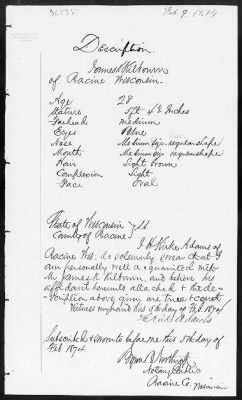 Feb. 9. 1874
Discription.
James K Kiltown
of Racine Wisconsin.
Age 28
Stature 5 ft
Forhead Medium
Eyes Blue
Nose Medium size, regular shape
Mouth Medium size regular shape
Hair Light Brown
Complexion Light
Face Oval
State of Wisconsin } S.S.
County of Racine
I H Kirke Adams of
Racine Wis. do solemnly swear that I
am personally well acquainted with
Mr James K Kiltown, and believe his
affidavit hereunto attached & the des-
cription above given are true & correct
Witness my hand this 5th day of Feb 1874
H Kirke Adams
Subscribed & sworn to before me this 5th day of
Feb 1874.
Notary Public
Racine Co. Wisconsin